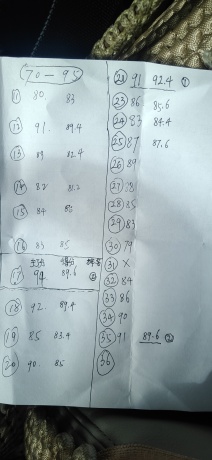 70-95
11 80 83
12 91. 89.4
13 89 82.4
14 82 81.2
15 84
16 83 85
打分 得分
17 94 89.6
18 92. 89.4
19 85 83.4
20 90. 85
91 92.4 ①
23 86 85.6
24 83 84.4
25 87 87.6
26 89
27
28 85
29 83
30 79
31 X
32 84
33 86
34 90
35 91 89.6 ②
36